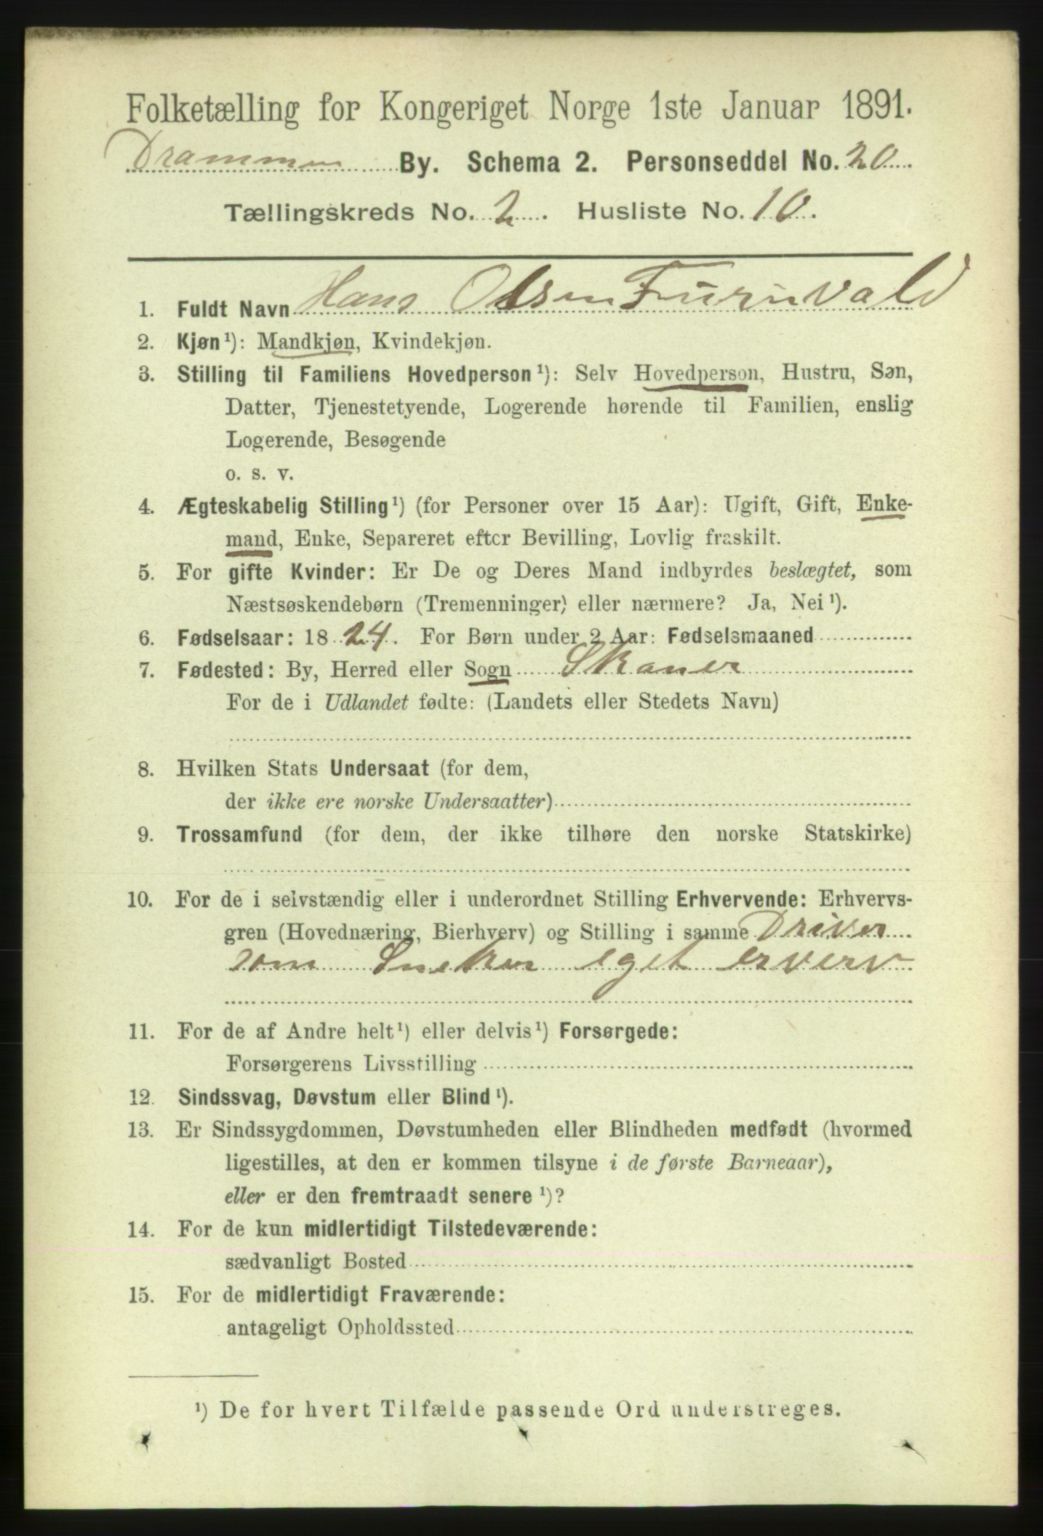 Folketælling for Kongeriget Norge 1ste Januar 1891.
Drammen By. Schema 2. Personseddel No. 20
Tællingskreds No. 2. Husliste No. 10.
1. Fuldt Navn Hans Olsen Furuvald
2. Kjøn ¹): Mandkjøn, Kvindekjøn.
3. Stilling til Familiens Hovedperson ¹): Selv Hovedperson, Hustru, Søn,
Datter, Tjenestetyende, Logerende hørende til Familien, enslig
Logerende, Besøgende
o. s. v.
4. Ægteskabelig Stilling ¹) (for Personer over 15 Aar): Ugift, Gift, Enke-
mand, Enke, Separeret efter Bevilling, Lovlig fraskilt.
5. For gifte Kvinder: Er De og Deres Mand indbyrdes beslægtet, som
Næstsøskendebørn (Tremenninger) eller nærmere? Ja, Nei ¹).
6. Fødselsaar: 1824. For Børn under 2 Aar: Fødselsmaaned
7. Fødested: By, Herred eller Sogn Skauer
For de i Udlandet fødte: (Landets eller Stedets Navn)
8. Hvilken Stats Undersaat (for dem,
der ikke ere norske Undersaatter)
9. Trossamfund (for dem, der ikke tilhøre den norske Statskirke)
10. For de i selvstændig eller i underordnet Stilling Erhvervende: Erhvervs-
gren (Hovednæring, Bierhverv) og Stilling i samme Driver
som Sneker eget erverv
11. For de af Andre helt ¹) eller delvis ¹) Forsørgede:
Forsørgerens Livsstilling
12. Sindssvag, Døvstum eller Blind ¹).
13. Er Sindssygdommen, Døvstumheden eller Blindheden medfødt (hvormed
ligestilles, at den er kommen tilsyne i de første Barneaar),
eller er den fremtraadt senere ¹)?
14. For de kun midlertidigt Tilstedeværende:
sædvanligt Bosted
15. For de midlertidigt Fraværende:
antageligt Opholdssted
¹) De for hvert Tilfælde passende Ord understreges.